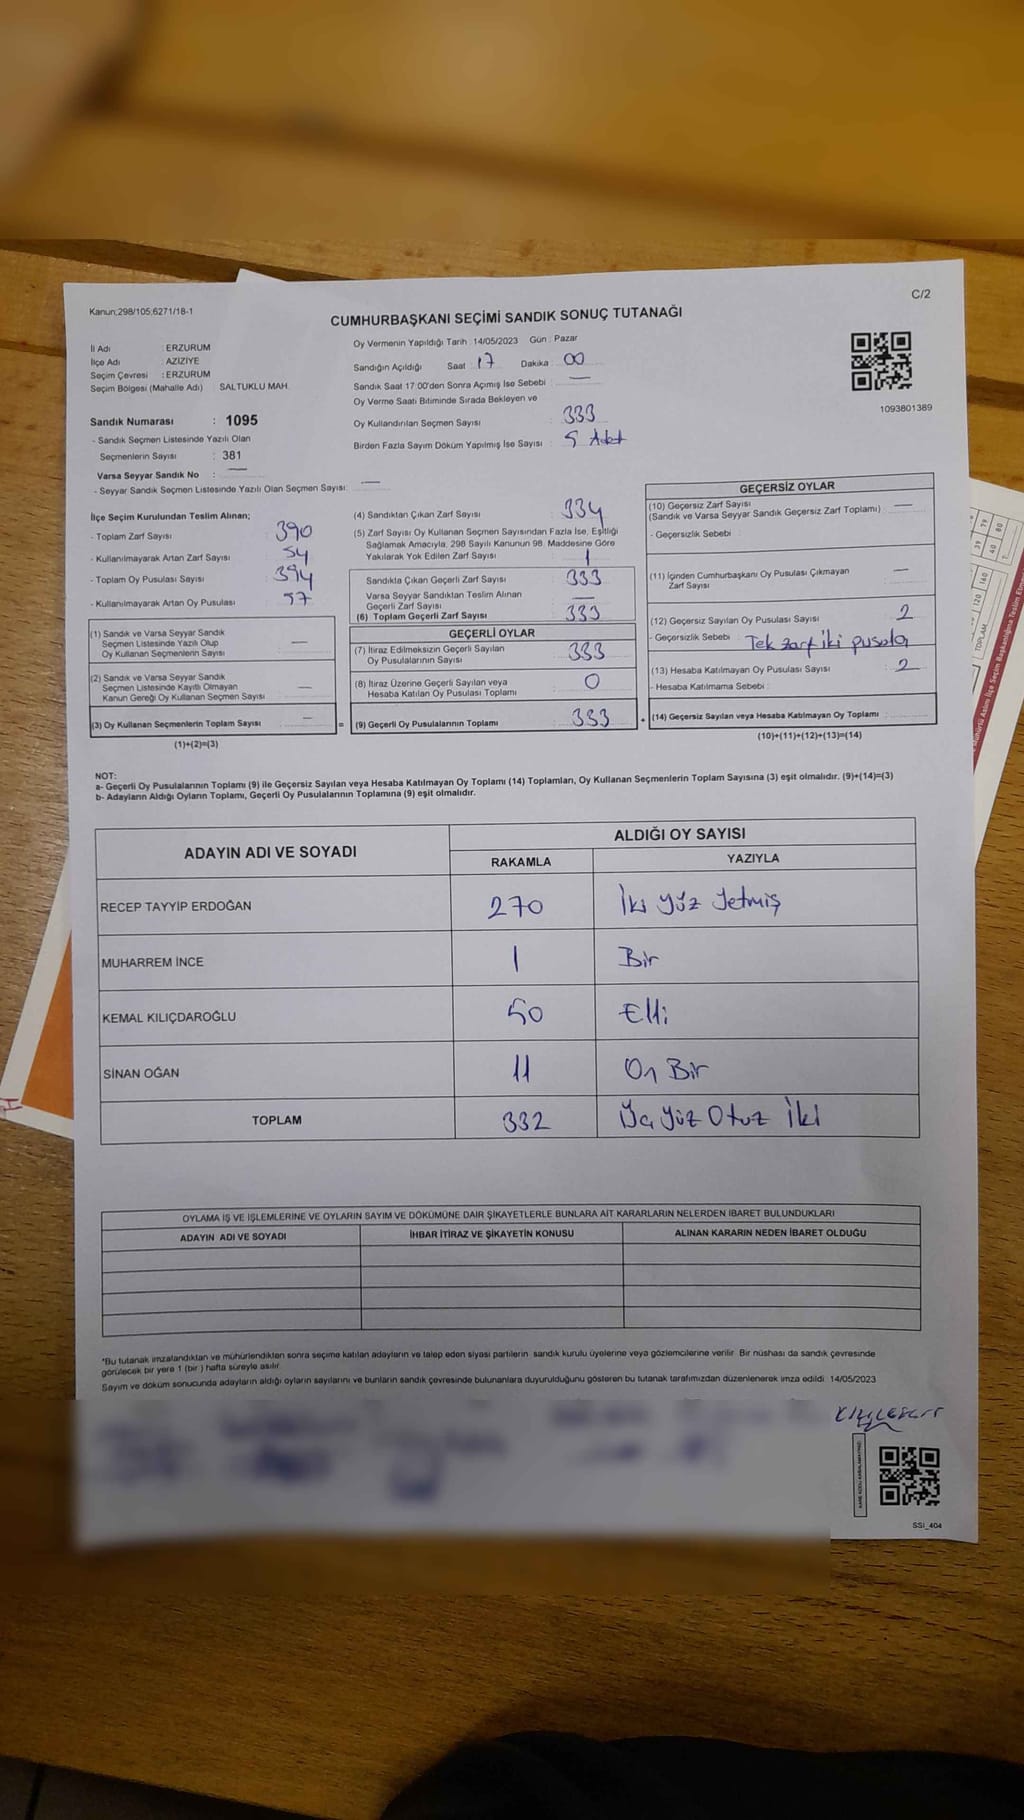 C/2
Kanun;298/105;6271/18-1
CUMHURBAŞKANI SEÇİMİ SANDIK SONUÇ TUTANAĞI
İl Adı : ERZURUM
İlçe Adı : AZIZIYE
Seçim Çevresi : ERZURUM
Seçim Bölgesi (Mahalle Adı) : SALTUKLU MAH.
Sandık Numarası : 1095
- Sandık Seçmen Listesinde Yazılı Olan
Seçmenlerin Sayısı : 381
Varsa Seyyar Sandık No : —
- Seyyar Sandık Seçmen Listesinde Yazılı Olan Seçmen Sayısı: —
Oy Vermenin Yapıldığı Tarih : 14/05/2023 Gün : Pazar
Sandığın Açıldığı Saat : 17 Dakika : 00
Sandık Saat 17:00'den Sonra Açımış İse Sebebi : —
Oy Verme Saati Bitiminde Sırada Bekleyen ve
Oy Kullandırılan Seçmen Sayısı : 333
Birden Fazla Sayım Döküm Yapılmış İse Sayısı : 5 Adet
1093801389
İlçe Seçim Kurulundan Teslim Alınan;
- Toplam Zarf Sayısı : 390
- Kullanılmayarak Artan Zarf Sayısı : 54
- Toplam Oy Pusulası Sayısı : 394
- Kullanılmayarak Artan Oy Pusulası : 57
(1) Sandık ve Varsa Seyyar Sandık
Seçmen Listesinde Yazılı Olup
Oy Kullanan Seçmenlerin Sayısı : —
(2) Sandık ve Varsa Seyyar Sandık
Seçmen Listesinde Kayıtlı Olmayan
Kanun Gereği Oy Kullanan Seçmen Sayısı : —
(3) Oy Kullanan Seçmenlerin Toplam Sayısı : — =
(1)+(2)=(3)
(4) Sandıktan Çıkan Zarf Sayısı : 334
(5) Zarf Sayısı Oy Kullanan Seçmen Sayısından Fazla İse, Eşitliği
Sağlamak Amacıyla, 298 Sayılı Kanunun 98. Maddesine Göre
Yakılarak Yok Edilen Zarf Sayısı : 1
Sandıkta Çıkan Geçerli Zarf Sayısı : 333
Varsa Seyyar Sandıktan Teslim Alınan
Geçerli Zarf Sayısı : —
(6) Toplam Geçerli Zarf Sayısı : 333
GEÇERLİ OYLAR
(7) İtiraz Edilmeksizin Geçerli Sayılan
Oy Pusulalarının Sayısı : 333
(8) İtiraz Üzerine Geçerli Sayılan veya
Hesaba Katılan Oy Pusulası Toplamı : 0
(9) Geçerli Oy Pusulalarının Toplamı : 333 +
GEÇERSİZ OYLAR
(10) Geçersiz Zarf Sayısı
(Sandık ve Varsa Seyyar Sandık Geçersiz Zarf Toplamı) : —
- Geçersizlik Sebebi :
(11) İçinden Cumhurbaşkanı Oy Pusulası Çıkmayan
Zarf Sayısı : —
(12) Geçersiz Sayılan Oy Pusulası Sayısı : 2
- Geçersizlik Sebebi : Tek zarf iki pusula
(13) Hesaba Katılmayan Oy Pusulası Sayısı : 2
- Hesaba Katılmama Sebebi :
(14) Geçersiz Sayılan veya Hesaba Katılmayan Oy Toplamı :
(10)+(11)+(12)+(13)=(14)
NOT:
a- Geçerli Oy Pusulalarının Toplamı (9) ile Geçersiz Sayılan veya Hesaba Katılmayan Oy Toplamı (14) Toplamları, Oy Kullanan Seçmenlerin Toplam Sayısına (3) eşit olmalıdır. (9)+(14)=(3)
b- Adayların Aldığı Oyların Toplamı, Geçerli Oy Pusulalarının Toplamına (9) eşit olmalıdır.
ADAYIN ADI VE SOYADI ALDIĞI OY SAYISI
RAKAMLA YAZIYLA
RECEP TAYYİP ERDOĞAN 270 İki Yüz Yetmiş
MUHARREM İNCE 1 Bir
KEMAL KILIÇDAROĞLU 50 Elli
SİNAN OĞAN 11 On Bir
TOPLAM 332 Üç Yüz Otuz İki
OYLAMA İŞ VE İŞLEMLERİNE VE OYLARIN SAYIM VE DÖKÜMÜNE DAİR ŞİKAYETLERLE BUNLARA AİT KARARLARIN NELERDEN İBARET BULUNDUKLARI
ADAYIN ADI VE SOYADI İHBAR İTİRAZ VE ŞİKAYETİN KONUSU ALINAN KARARIN NEDEN İBARET OLDUĞU
*Bu tutanak imzalandıktan ve mühürlendikten sonra seçime katılan adayların ve talep eden siyasi partilerin sandık kurulu üyelerine veya gözlemcilerine verilir. Bir nüshası da sandık çevresinde
görülecek bir yere 1 (bir ) hafta süreyle asılır.
Sayım ve döküm sonucunda adayların aldığı oyların sayılarını ve bunların sandık çevresinde bulunanlara duyurulduğunu gösteren bu tutanak tarafımızdan düzenlenerek imza edildi. 14/05/2023
SSI_404